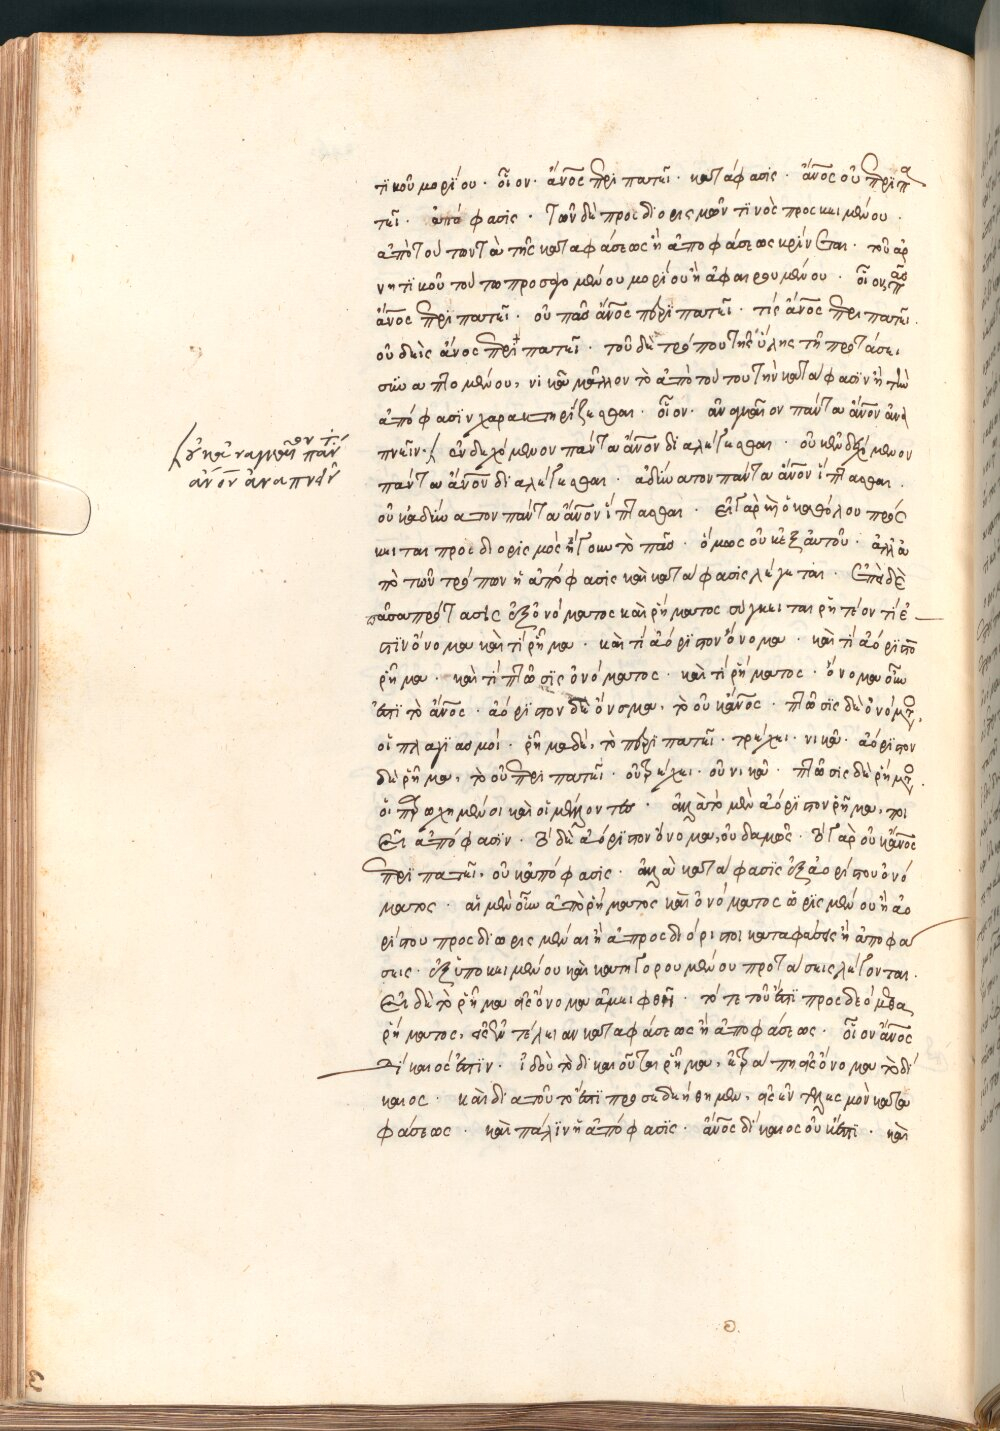 τικοῦ μορίου · οἷον · ἄνος περιπατεῖ · κατάφασις · ἄνος οὐ περιπα
τεῖ · ἀπόφασις · τῶν δὲ προσδιορισμῶν τινὸς προσκειμένου ·
ἀπὸ τούτου τὰ τῆς καταφάσεως ἢ ἀποφάσεως κρίνεται · τοῦ ἀρ
νητικοῦ τούτω προσαγομένου μορίου ἢ ἀφαιρουμένου · οἷον, πᾶς
ἄνος περιπατεῖ · οὐ πᾶς ἄνος περιπατεῖ · τίς ἄνος περιπατεῖ ·
οὐδεὶς ἄνος περιπατεῖ · τοῦ δὲ τρόπου τῆς ὕλης τῇ προτάσει
συναπτομένου, νικᾶ μᾶλλον τὸ ἀπὸ τούτου τὴν κατάφασιν ἢ τὴν
ἀπόφασιν χαρακτηρίζεσθαι · οἷον · ἀναγκαῖον πάντα ἄνον ἀνα
πνεῖν · ἐνδεχόμενον πάντα ἄνον διαλέγεσθαι · οὐκ ἐνδεχόμενον
οὐκ ἀναγκαῖον πάντ
ἄνον ἀναπνεῖν
πάντα ἄνον διαλέγεσθαι · ἀδύνατον πάντα ἄνον ἵπτασθαι ·
οὐκ ἀδύνατον πάντα ἄνον ἵπτασθαι · εἰ γὰρ καὶ ὁ καθόλου πρόσ
κειται προσδιορισμὸς ἤγουν τὸ πᾶς · ὅμως οὐκ ἐξ αὐτοῦ · ἀλλ' ἀ
πὸ τῶν τρόπων ἡ ἀπόφασις καὶ κατάφασις λέγεται · ἐπεὶ δὲ
πᾶσα πρότασις ἐξ ὀνόματος καὶ ῥήματος σύγκειται ῥητέον τί ἐ
στιν ὄνομα καὶ τί ῥῆμα · καὶ τί ἀόριστον ὄνομα · καὶ τί ἀόριστον
ῥῆμα · καὶ τί πτῶσις ὀνόματος · καὶ τί ῥήματος · ὄνομα οὖν
ἐστι τὸ ἄνος · ἀόριστον δὲ ὄνομα, τὸ οὐκ ἄνος · πτῶσις δὲ ὀνόματος,
οἱ πλαγιασμοί · ῥῆμα δὲ, τὸ περιπατεῖ · τρέχει · νικᾶ · ἀόριστον
δὲ ῥῆμα, τὸ οὐ περιπατεῖ · οὐ τρέχει · οὐ νικᾶ · πτῶσις δὲ ῥήματος,
οἱ παρωχημένοι καὶ οἱ μέλλοντες · ἀλλὰ τὸ μὲν ἀόριστον ῥῆμα, ποι
εῖ ἀπόφασιν · τὸ δὲ ἀόριστον ὄνομα, οὐδαμῶς · τὸ γὰρ οὐκ ἄνος
περιπατεῖ, οὐκ ἀπόφασις · ἀλλὰ κατάφασις ἐξ ἀορίστου ὀνό
ματος · αἱ μὲν οὖν ἀπὸ ῥήματος καὶ ὀνόματος ὡρισμένου ἢ ἀο
ρίστου προσδιωρισμέναι ἢ ἀπροσδιόριστοι καταφάσεις ἢ ἀποφά
σεις · ἐξ ὑποκειμένου καὶ κατηγορουμένου προτάσεις λέγονται ·
Εἰ δὲ τὸ ῥῆμα εἰς ὄνομα ἀμειφθῇ · τότε τοῦ ἐστὶ προσδεόμεθα
ῥήματος, εἰς ἐντέλειαν καταφάσεως ἢ ἀποφάσεως · οἷον ἄνος
δίκαιός ἐστιν · ἰδοὺ τὸ δικαιοῦται ῥῆμα, ἐτράπη εἰς ὄνομα τὸ δί
καιος · καὶ διὰ τοῦτο τὸ ἐστὶ προσεδεήθημεν, εἰς ἐντελισμὸν κατα
φάσεως · καὶ πάλιν ἡ ἀπόφασις · ἄνος δίκαιος οὐκ ἔστι · καὶ